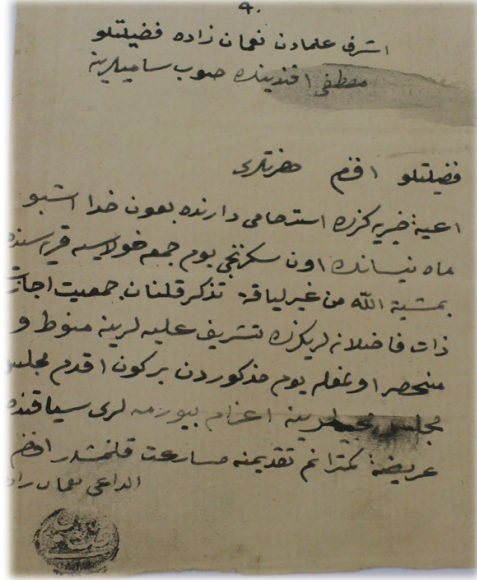 اشرف علمادن نعمان زاده فضيلتلو
مصطفى افندينك صوب ساميلرينه
فضيلتلو افندم حضرتلرى
ادعيۀ خيريه كزه استرحامى دارنده بعون خدا اشبو
ماه نيسانك اون سكزنجى يوم جمعه قريه سنده
بمشية الله من غير لياقة تذكر قلنان جمعيت اجازت
ذات فاضلانه لريكزك تشريف عليه لرينه منوط و
منحصر اولمغله يوم مذكوردن بر كون اقدم مجلس
مجلس لرينه اعزام بيورمه لرى سياقنده
عريضۀ كمترانم تقديمنه مسارعت قلنمشدر افندم
الداعى نعمان زاده